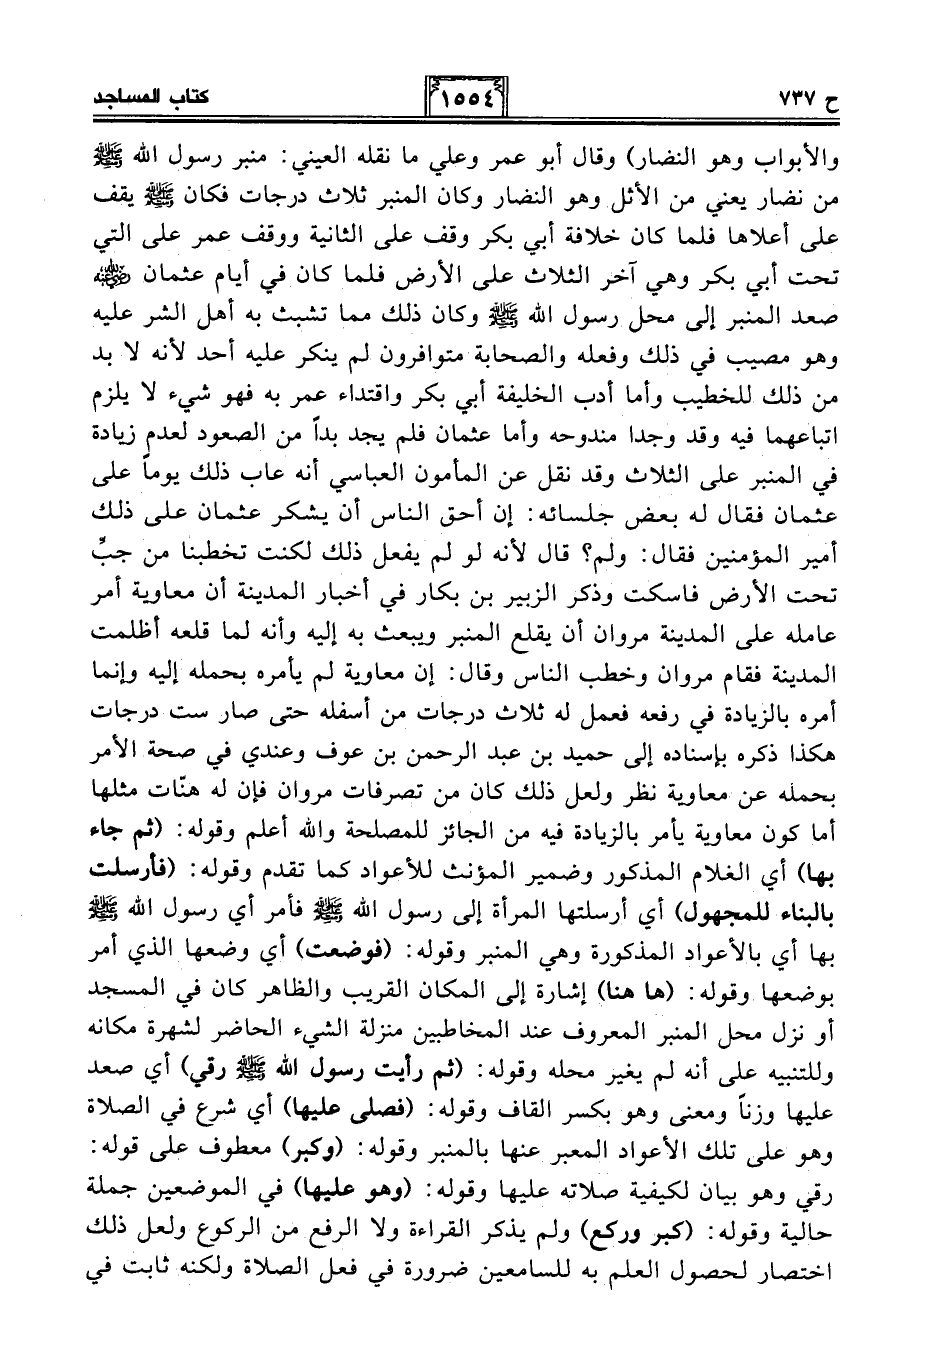 ح ٧٣٧ ١٥٥٤ كتاب المساجد
والأبواب وهو النضار) وقال أبو عمر وعلي ما نقله العيني: منبر رسول الله ﷺ
من نضار يعني من الأثل وهو النضار وكان المنبر ثلاث درجات فكان ﷺ يقف
على أعلاها فلما كان خلافة أبي بكر وقف على الثانية ووقف عمر على التي
تحت أبي بكر وهي آخر الثلاث على الأرض فلما كان في أيام عثمان رضي الله عنه
صعد المنبر إلى محل رسول الله ﷺ وكان ذلك مما تشبث به أهل الشر عليه
وهو مصيب في ذلك وفعله والصحابة متوافرون لم ينكر عليه أحد لأنه لا بد
من ذلك للخطيب وأما أدب الخليفة أبي بكر واقتداء عمر به فهو شيء لا يلزم
اتباعهما فيه وقد وجدا مندوحه وأما عثمان فلم يجد بداً من الصعود لعدم زيادة
في المنبر على الثلاث وقد نقل عن المأمون العباسي أنه عاب ذلك يوماً على
عثمان فقال له بعض جلسائه: إن أحق الناس أن يشكر عثمان على ذلك
أمير المؤمنين فقال: ولم؟ قال لأنه لو لم يفعل ذلك لكنت تخطبنا من جبٍّ
تحت الأرض فاسكت وذكر الزبير بن بكار في أخبار المدينة أن معاوية أمر
عامله على المدينة مروان أن يقلع المنبر ويبعث به إليه وأنه لما قلعه أظلمت
المدينة فقام مروان وخطب الناس وقال: إن معاوية لم يأمره بحمله إليه وإنما
أمره بالزيادة في رفعه فعمل له ثلاث درجات من أسفله حتى صار ست درجات
هكذا ذكره بإسناده إلى حميد بن عبد الرحمن بن عوف وعندي في صحة الأمر
بحمله عن معاوية نظر ولعل ذلك كان من تصرفات مروان فإن له هنّات مثلها
أما كون معاوية يأمر بالزيادة فيه من الجائز للمصلحة والله أعلم وقوله: (ثم جاء
بها) أي الغلام المذكور وضمير المؤنث للأعواد كما تقدم وقوله: (فأرسلت
بالبناء للمجهول) أي أرسلتها المرأة إلى رسول الله ﷺ فأمر أي رسول الله ﷺ
بها أي بالأعواد المذكورة وهي المنبر وقوله: (فوضعت) أي وضعها الذي أمر
بوضعها وقوله: (ها هنا) إشارة إلى المكان القريب والظاهر كان في المسجد
أو نزل محل المنبر المعروف عند المخاطبين منزلة الشيء الحاضر لشهرة مكانه
وللتنبيه على أنه لم يغير محله وقوله: (ثم رأيت رسول الله ﷺ رقي) أي صعد
عليها وزناً ومعنى وهو بكسر القاف وقوله: (فصلى عليها) أي شرع في الصلاة
وهو على تلك الأعواد المعبر عنها بالمنبر وقوله: (وكبر) معطوف على قوله:
رقي وهو بيان لكيفية صلاته عليها وقوله: (وهو عليها) في الموضعين جملة
حالية وقوله: (كبر وركع) ولم يذكر القراءة ولا الرفع من الركوع ولعل ذلك
اختصار لحصول العلم به للسامعين ضرورة في فعل الصلاة ولكنه ثابت في